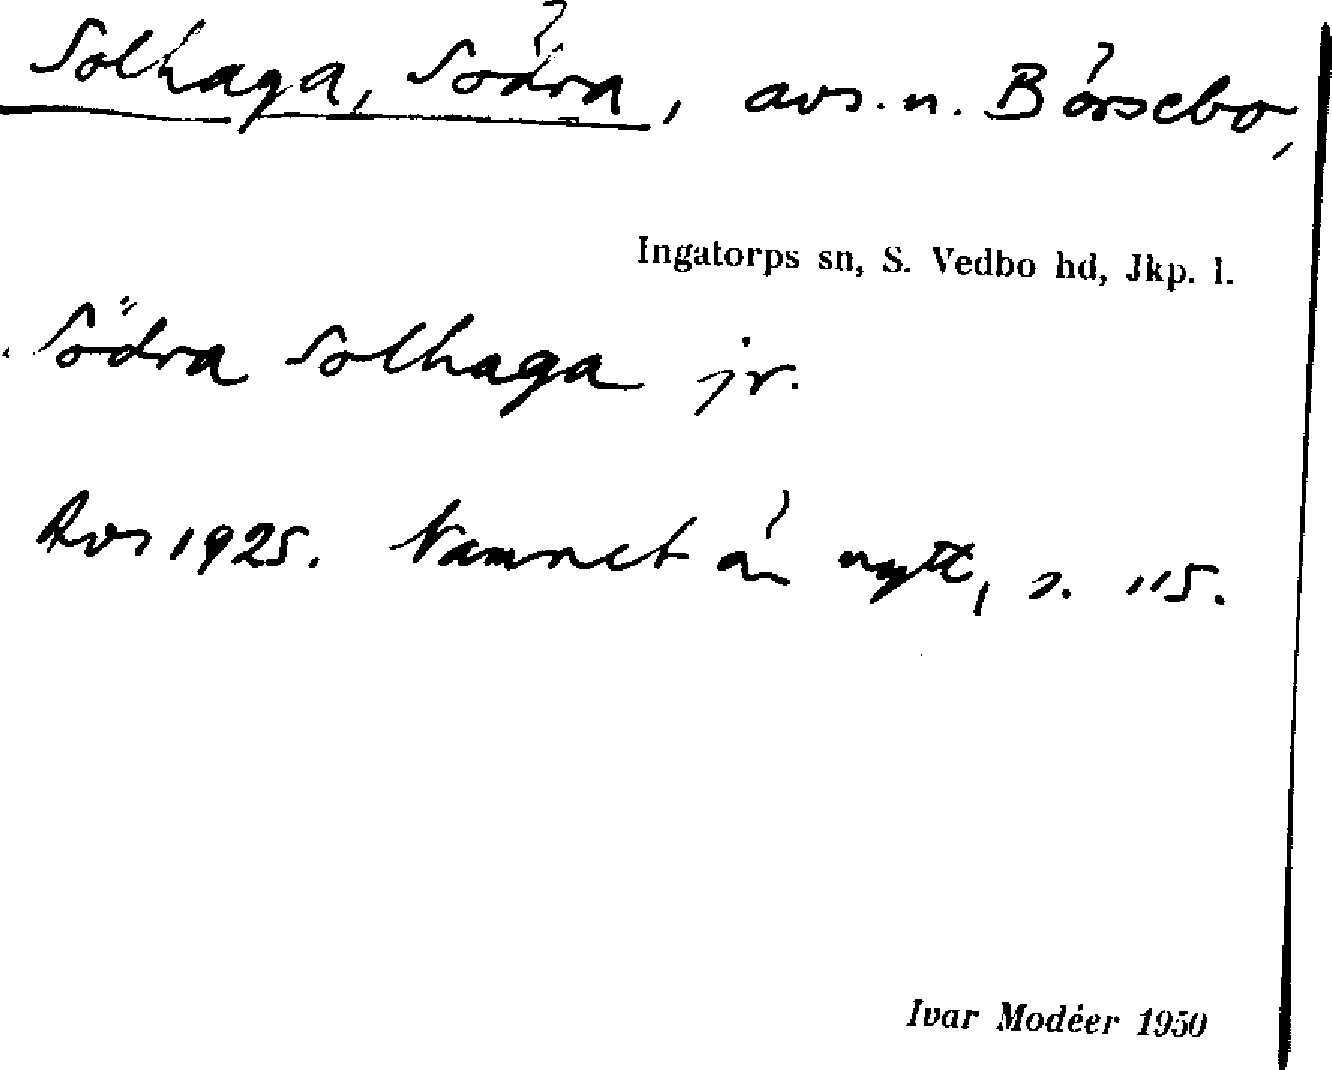 Solhaga, Södra, avs. u. Börsebo,
Ingatorps sn, S. Vedbo hd, Jkp. l.
Södra Solhaga jr.
Avs 1925. Namnet är nytt, s. 115.
Ivar Modéer 1950